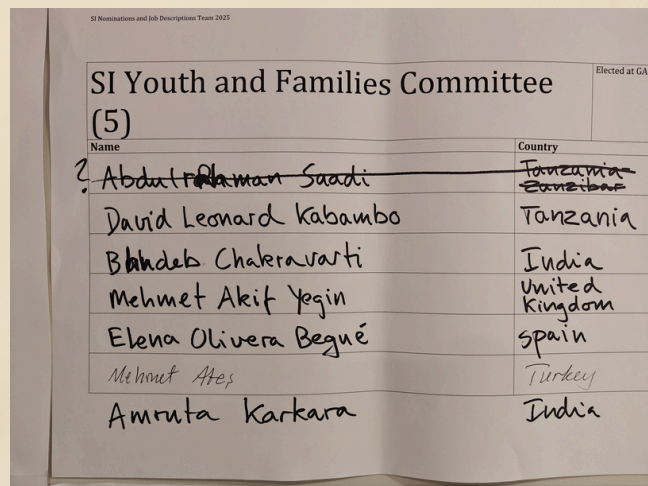 SI Nominations and Job Descriptions Team 2025
SI Youth and Families Committee
(5)
Elected at GA
Name Country
? Saadi Tanzania-
Zanzibar
David Leonard Kabambo Tanzania
Chakravarti India
Mehmet Akif Yegin United
Kingdom
Elena Olivera Begué Spain
Mehmet Ateş Turkey
Amruta Karkara India